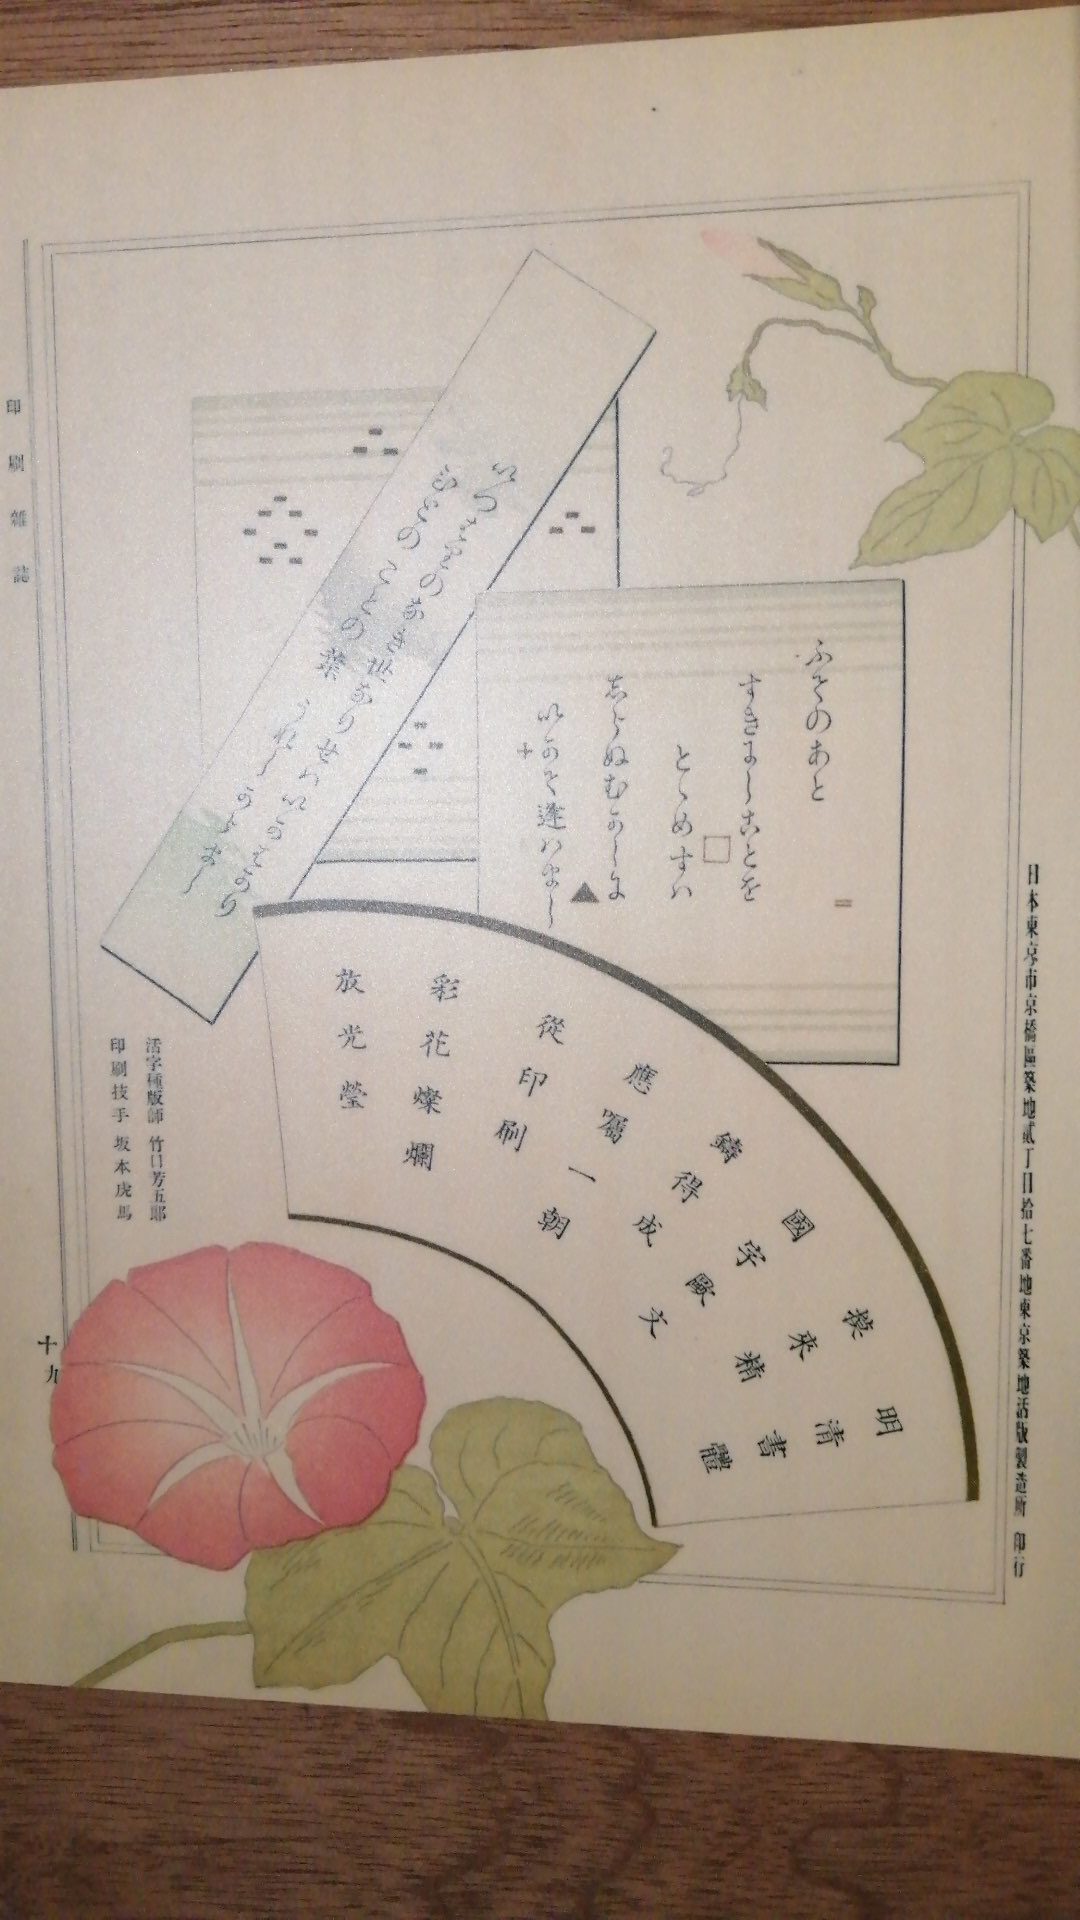 日本東京市京橋區築地貳丁目拾七番地東京築地活版製造所 印行
ふてのあと
すきにしことを
とゝめすハ
志らぬむかしに
いかて逢ハまし
いつはりのなき世なりせハいかはかり
ひとのことの葉 うれしからまし
明清書體
模來精
國字歐文
鑄得成
應需一朝
從印刷
彩花燦爛
放光瑩
活字種版師 竹口芳五郎
印刷技手 坂本虎馬
印刷雜誌
十九